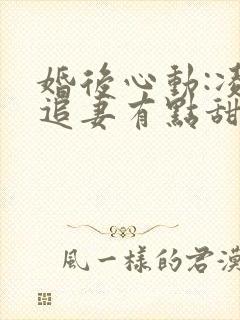 婚後心動:凌
追妻有點甜
風一樣的君漠